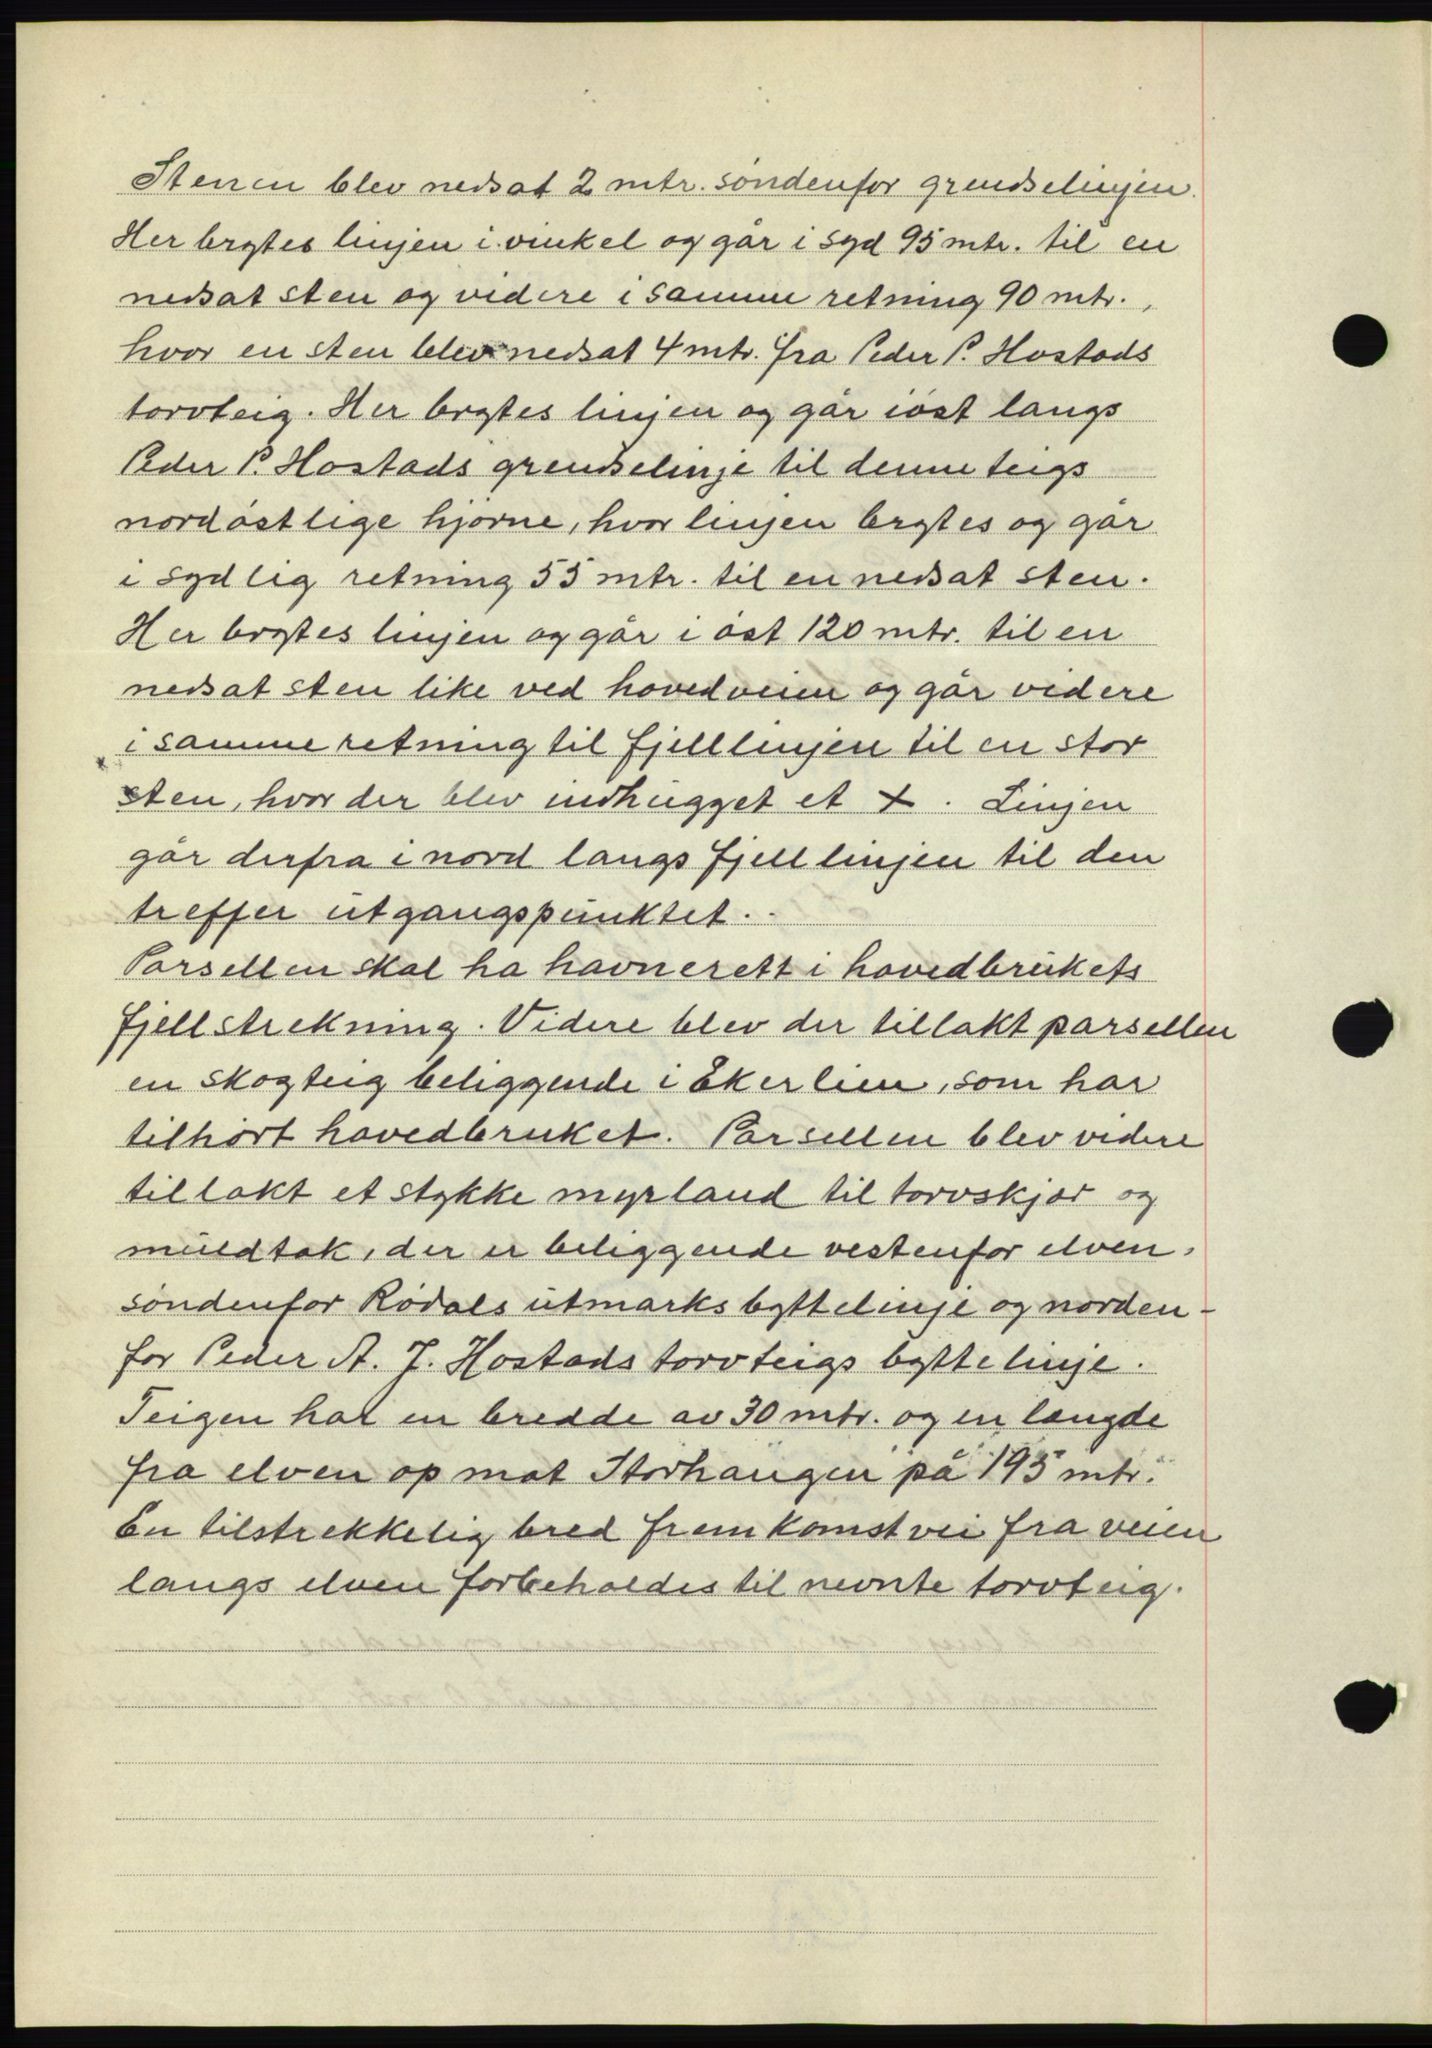 Stenen blev nedsat 2 mtr. søndenfor grendselinjen.
Her brytes linjen i vinkel og går i syd 95 mtr. til en
nedsat sten og videre i samme retning 90 mtr.,
hvor en sten blev nedsat 4 mtr. fra Peder P. Hostads
torvteig. Her brytes linjen og går i øst langs
Peder P. Hostads grendselinje til denne teigs
nordøstlige hjørne, hvor linjen brytes og går
i sydlig retning 55 mtr. til en nedsat sten.
Her brytes linjen og går i øst 120 mtr. til en
nedsat sten like ved hovedveien og går videre
i samme retning til fjelllinjen til en stor
sten, hvor der blev indhugget et +. Linjen
går derfra i nord langs fjelllinjen til den
treffer utgangspunktet.
Parsellen skal ha havnerett i hovedbrukets
fjellstrekning. Videre blev der tillakt parsellen
en skogteig beliggende i Ekerlien, som har
tilhørt hovedbruket. Parsellen blev videre
tillakt et stykke myrland til torvskjær og
muldtak, der er beliggende vestenfor elven,
søndenfor Rødals utmarks byttelinje og norden-
for Peder A. J. Hostads torvteigs byttelinje.
Teigen har en bredde av 30 mtr. og en længde
fra elven op mot "Storhaugen" på 195 mtr.
En tilstrekkelig bred fremkomstvei fra veien
langs elven forbeholdes til nevnte torvteig.